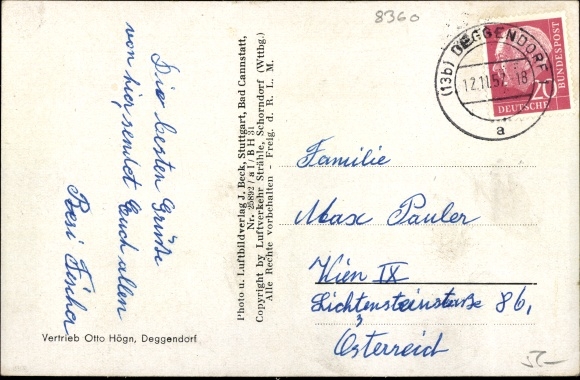 8360
(13b) DEGGENDORF
12.11.57.-18
a
DEUTSCHE
BUNDESPOST
20
Die besten Grüße
von hier, sendet Euch allen
Resi Fischer
Vertrieb Otto Högn, Deggendorf
Photo u. Luftbildverlag J. Beck, Stuttgart, Bad Cannstatt,
Nr. 25892 / a I / B H 31
Copyright by Luftverkehr Strähle, Schorndorf (Wttbg.)
Alle Rechte vorbehalten - Freig. d. R. L. M.
Familie
Max Pauler
Wien IX
Lichtensteinstraße 86,
3
Österreich